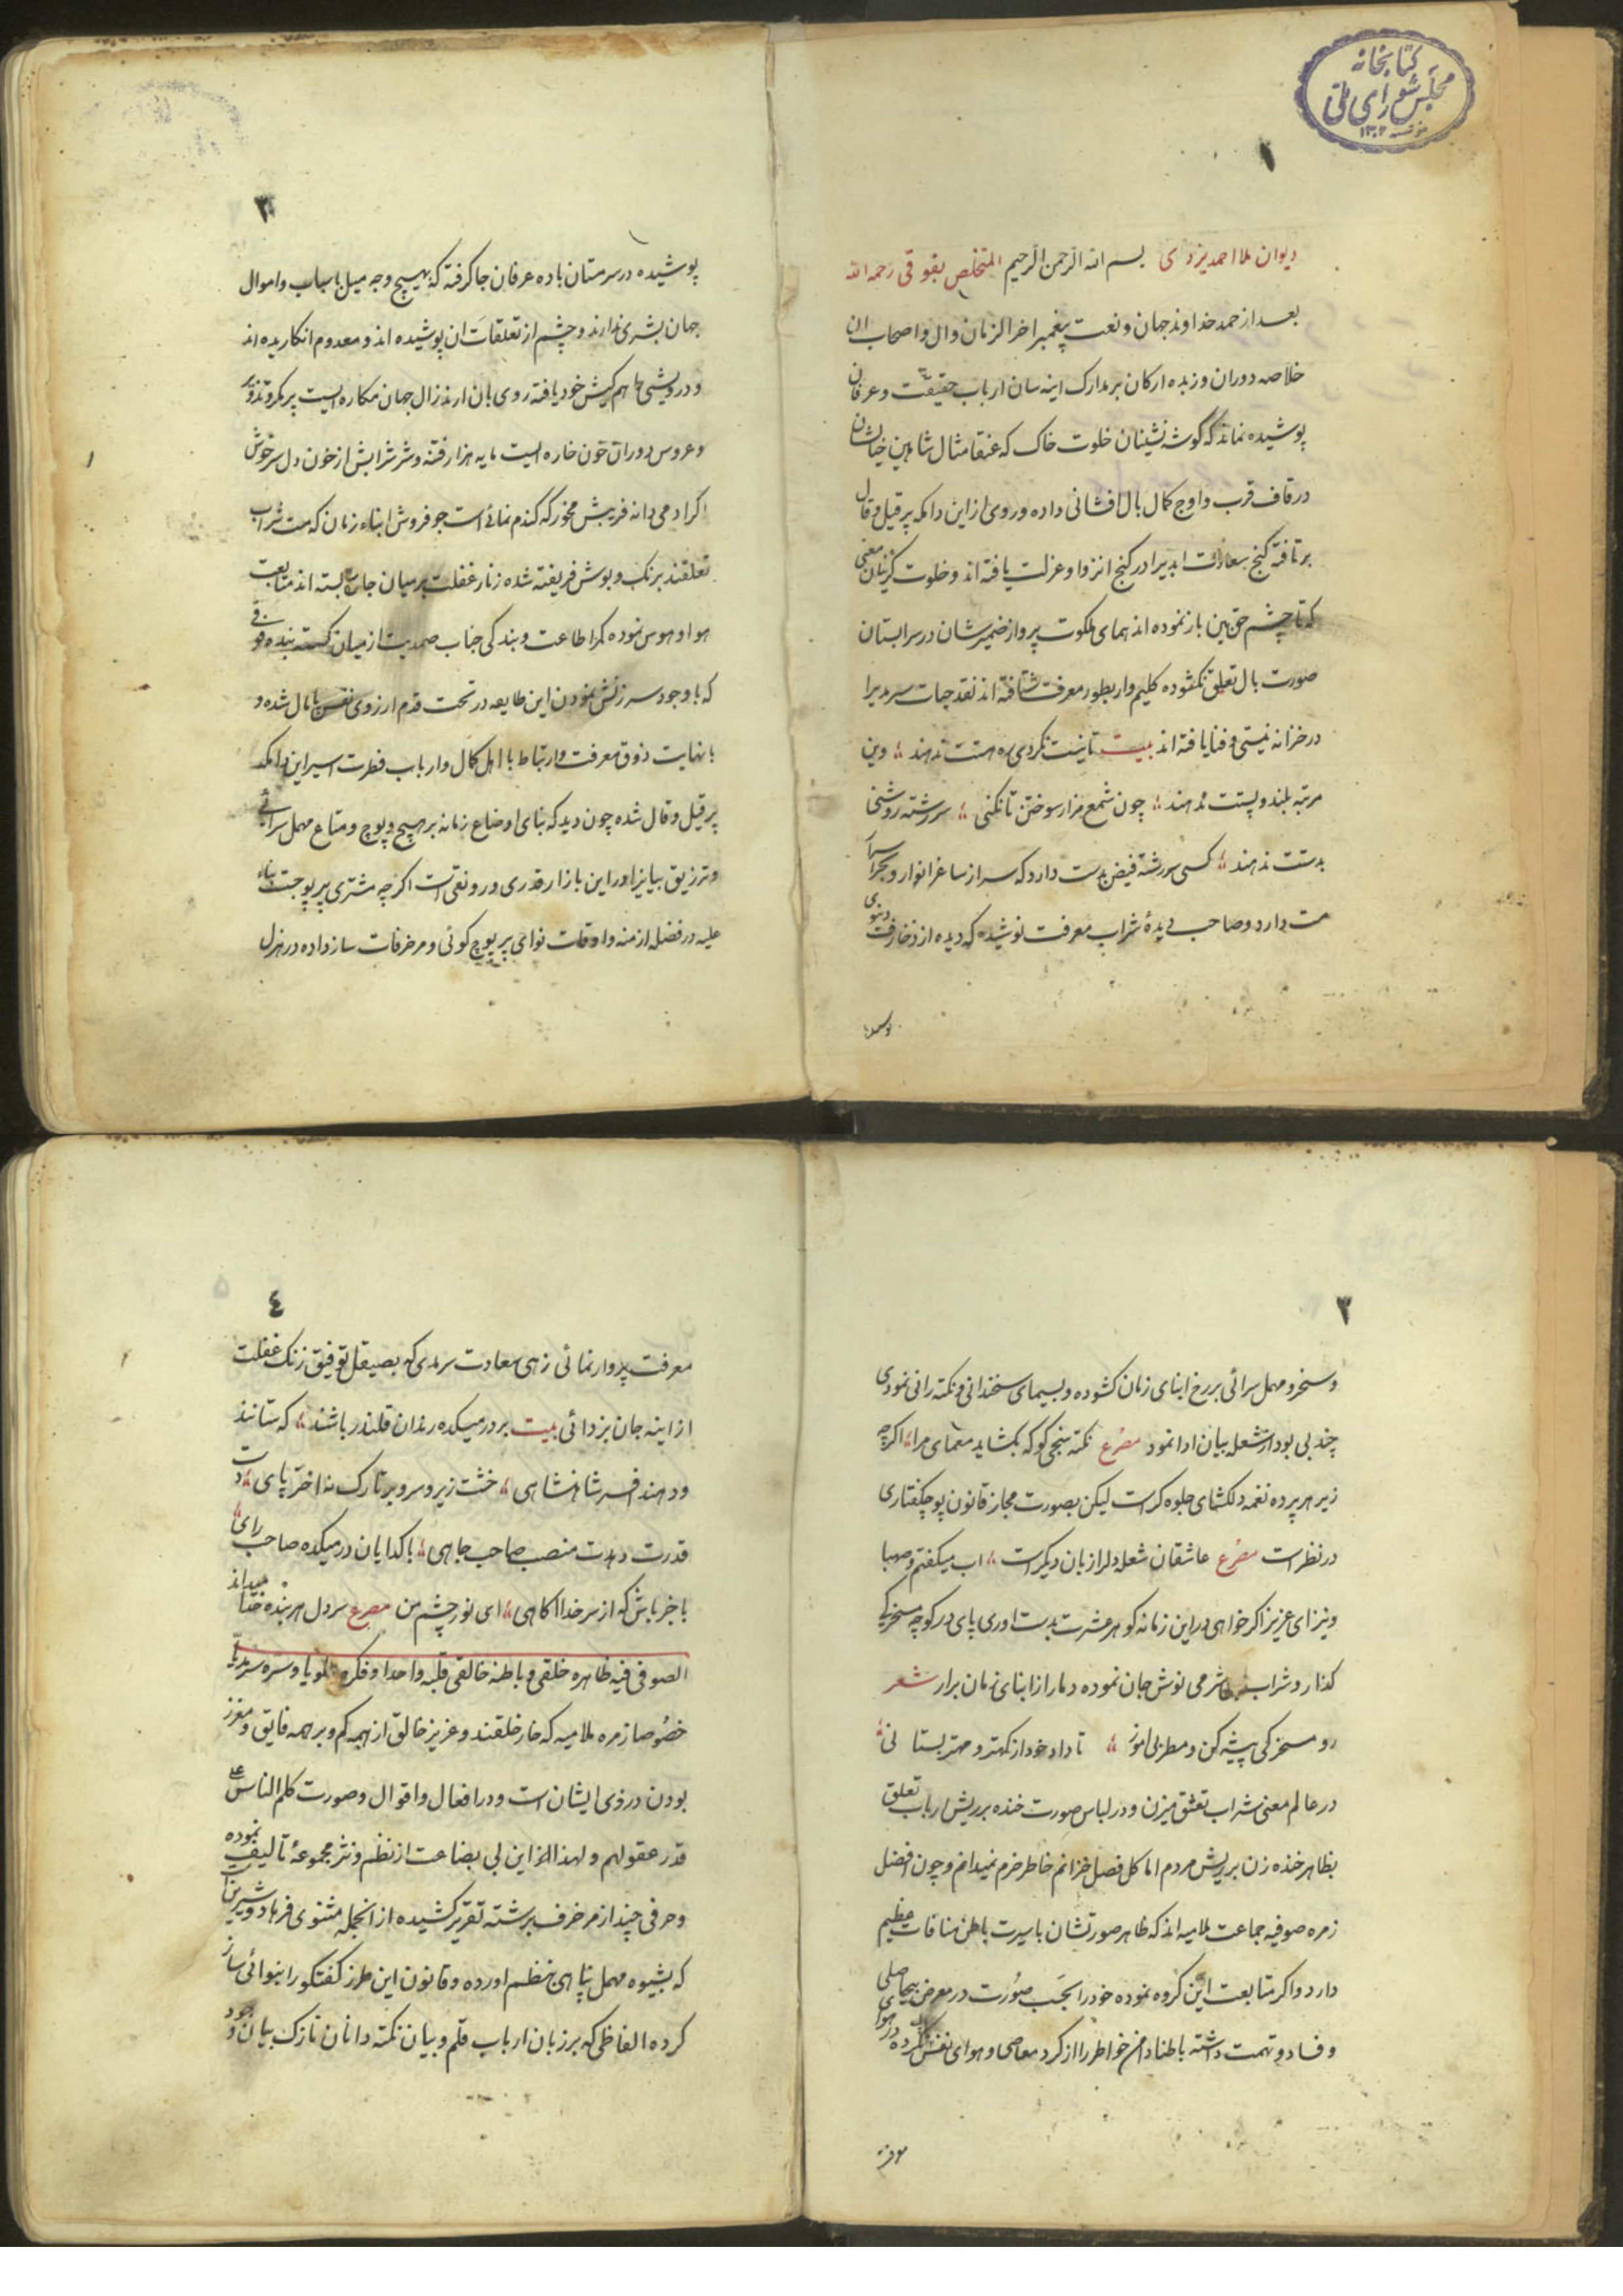 کتابخانه
مجلس شورای ملی
موسسه ۱۳۰۲
۱
دیوان ملا احمد یزدی بسم الله الرحمن الرحیم المتخلص بفوقی رحمه الله
بعد از حمد خداوند جهان و نعت پیغمبر اخرالزمان و ال و اصحاب ان
خلاصه دوران و زبده ارکان بر مدارک اینه سان ارباب حقیقت و عرفان
پوشیده نماند که گوشه نشینان خلوت خاک که عنقا مثال شاهین خیالشان
در قاف قرب و اوج کمال بال افشانی داده و روی از این دامکه پر قیل و قال
بر تافته گنج سعادت ابدیرا در کنج انزوا و عزلت یافته اند و خلوت گزینان معنی
که تا چشم حق بین باز نموده اند همای ملکوت پرواز ضمیرشان در سرابستان
صورت بال تعلق نگشوده کلیم وار بطور معرفت شتافته اند نقد حیات سرمدیرا
در خزانه نیستی و فنا یافته اند بیت تا نیست نکردی ره هستت ندهند وین
مرتبه بلند و پستت ندهند چون شمع مزار سوختن تا نکنی سررشته روشنی
بدستت ندهند کسی سررشته فیض بدست دارد که سر از ساغر انوار و
مست دارد و صاحب دیدهٔ شراب معرفت نوشیده که دیده از زخارفت دنیوی
۲
پوشیده در سر مستان باده عرفان جا کرفته که بهیچ وجه میل باسباب و اموال
جهان بشری ندارند و چشم از تعلقات ان پوشیده اند و معدوم انکاریده اند
و درویشی را هم کیش خود یافته روی بان ارند زال جهان مکاره ایست پر مکر و تذویر
و عروس دوران خون خاره ایست مایه هزار فتنه و شر شرابش از خون دل سرخوش
اکر ادمی دانه فریبش مخور که گندم نمائی است جو فروش ابناء زمان که مست شراب
تعلقند برنک و بوش فریفته شده زنار غفلت بر میان جان بسته اند متابعت
هوا و هوس نموده کمر اطاعت و بندکی جناب صمدیت از میان کسسته بنده فوقی
که با وجود سرزنش نمودن این طایفه در تحت قدم ارزوی نفس پامال شده و
با نهایت ذوق معرفت و ارتباط با اهل کمال و ارباب فطرت اسیر این دامکه
پر قیل و قال شده چون دید که بنای اوضاع زمانه بر هیچ و پوچ و متاع مهمل سرائی
و ترزیق بیانیرا در این بازار قدری و رونقی است اکر چه مشتری پر پوچست بناء
علیه در فضله ازمنه و اوقات نوای پر پوچ کوئی و مزخرفات ساز داده در هزل
۳
و سخر و مهمل سرائی بر رخ ابنای زمان کشوده و بسیمای سخندانی و نکته رانی نمودی
چند بی بود از شعله بیان ادا نمود مصرع نکته سنجی کو که بکشاید معمای مرا اکرچه
زیر هر پرده نغمه دلکشای جلوه کر است لیکن بصورت مجاز قانون پوچکفتاری
در نظر است مصرع عاشقان شعله دلرا زبان دیکر است اب میکفتم و صهبا
و نیز ای عزیز اکر خواهی در این زمانه کوهر عشرت بدست اوری پای در کوچه مسخرکی
کذار و شراب بیشرمی نوش جان نموده دمار از ابنای زمان برار شعر
رو مسخرکی پیشه کن و مطربی اموز تا داد خود از کهتر و مهتر بستانی
در عالم معنی شراب تعشق میزن و در لباس صورت خنده بر ریش ارباب تعلق
بظاهر خنده زن بر ریش مردم اما کل فصل خزانم خاطر خرم نمیدانم و چون افضل
زمره صوفیه جماعت ملامیه اند که ظاهر صورتشان با سیرت باطن منافات عظیم
دارد و اکر متابعت این کروه نموده خود را بحسب صورت در معرض بیحاصلی
و فساد و تهمت داشته باطنا دامن خواطر را از کرد معاصی و هوای نفس
معرفت
۴
معرفت پروار نمائی زهی سعادت سرمدی که بصیقل توفیق زنک غفلت
از اینه جان بزدائی بیت بر در میکده رندان قلندر باشند که ستانند
و دهند افسر شاهنشاهی خشت زیر سر و بر تارک نه اختر پای دست
قدرت دهدت منصب صاحب جاهی با کدایان در میکده صاحب رای
با خبر باش که از سر خدا اکاهی ای نور چشم من مصرع سر دل هر بنده خدا میداند
الصوفی فیه ظاهره خلقی و باطنه خالقی قلبه واحدا و فکره علویا و سره سرمدیا
خصوصا زمره ملامیه که خار خلقند و عزیز خالق از همه کم و بر همه فایق و
بودن در ذوی ایشان است و در افعال و اقوال و صورت کلم الناس علی
قدر عقولهم و لهذا از این بی بضاعت از نظم و نثر مجموعهٔ تالیف نموده
و حرفی چند از مزخرف برشته تقریر کشیده از انجمله مثنوی فرهاد و شیرین
که بشیوه مهمل بنائی بنظم اورده و قانون این طرز کفتکو را بنوائی ساز
کرده الفاظی که بر زبان ارباب قلم و بیان نکته دانان نازک بیان